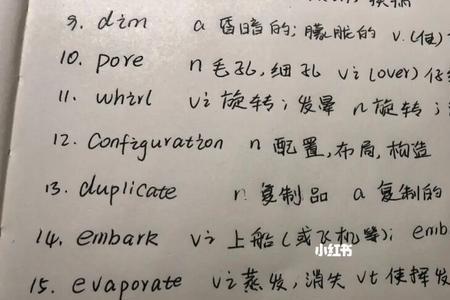 9. dim a 昏暗的; 朦胧的 v.(使)
10. pore n 毛孔, 细孔 vi (over) 仔
11. whirl vi 旋转; 发晕 n 旋转;
12. configuration n 配置, 布局, 构造
13. duplicate n. 复制品 a 复制的
14. embark vi 上船(或飞机等); emb
小红书
15. evaporate vi 蒸发, 消失 vt 使挥发